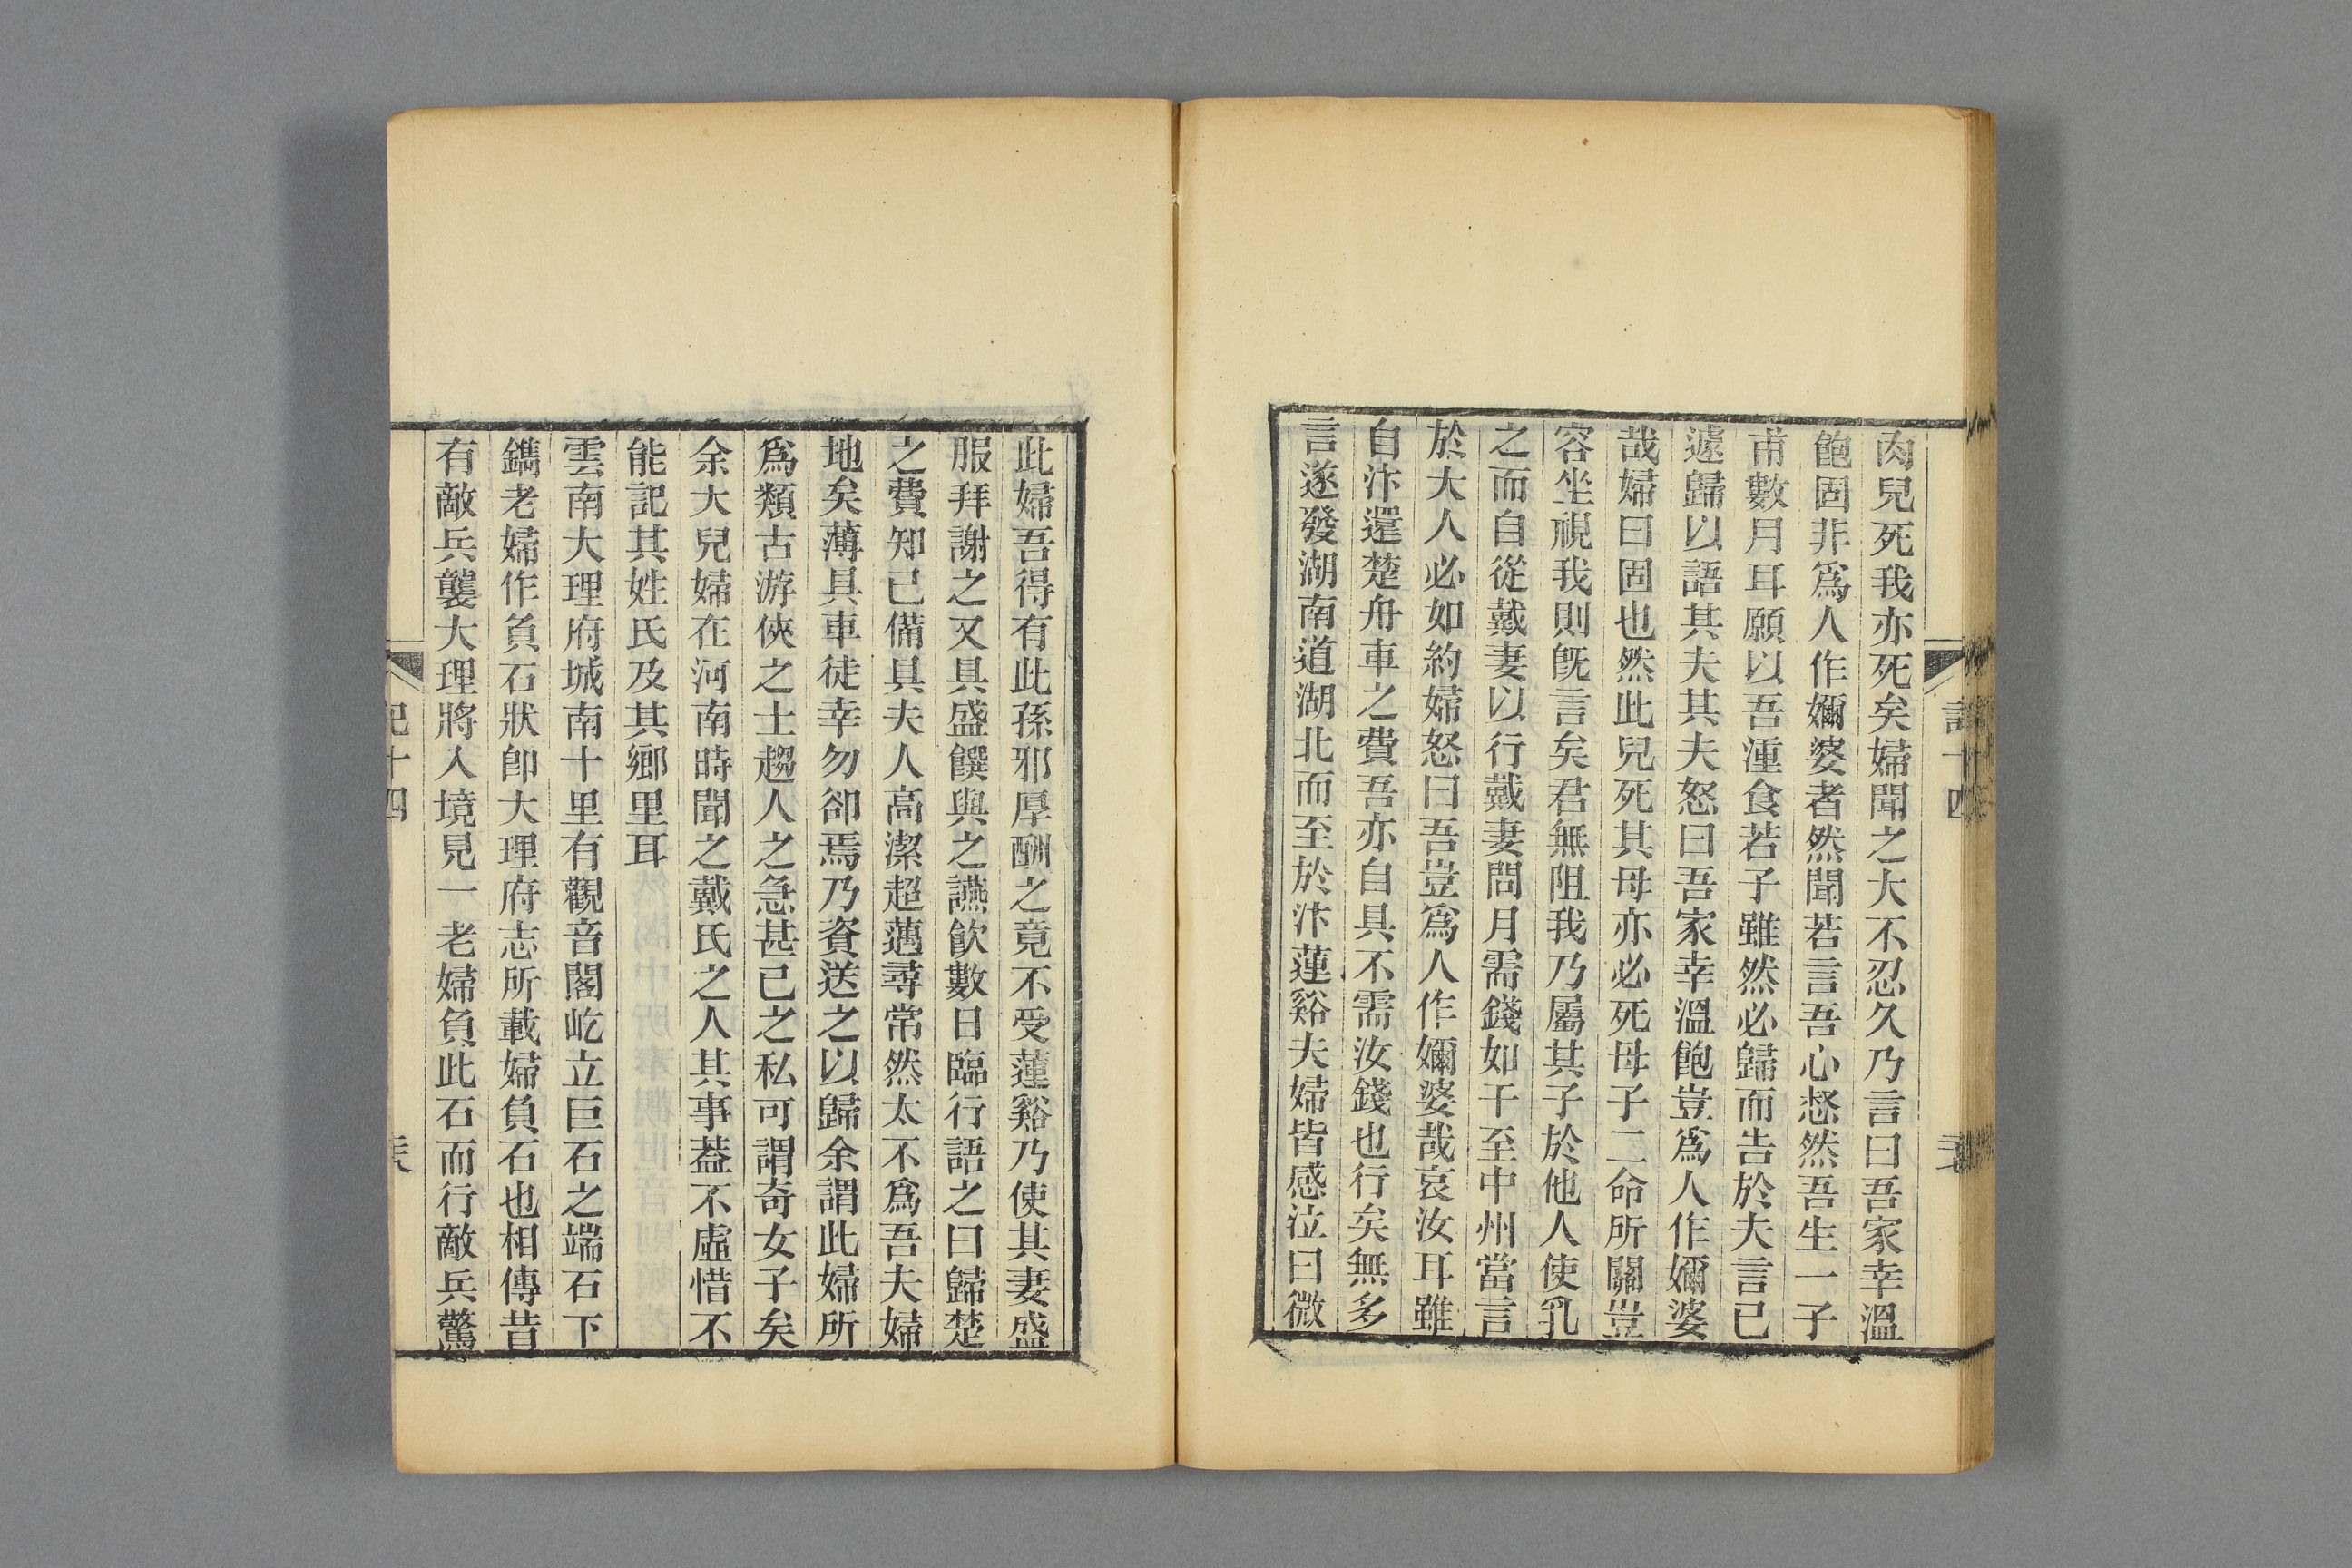 肉兒死我亦死矣婦聞之大不忍久乃言曰吾家幸溫
飽固非爲人作嬭婆者然聞若言吾心惄然吾生一子
甫數月耳願以吾湩食若子雖然必歸而告於夫言已
遽歸以語其夫其夫怒曰吾家幸溫飽豈爲人作嬭婆
哉婦曰固也然此兒死其母亦必死母子二命所關豈
容坐視我則旣言矣君無阻我乃屬其子於他人使乳
之而自從戴妻以行戴妻問月需錢如干至中州當言
於大人必如約婦怒曰吾豈爲人作嬭婆哉哀汝耳雖
自汴還楚舟車之費吾亦自具不需汝錢也行矣無多
言遂發湖南道湖北而至於汴蓮谿夫婦皆感泣曰微
此婦吾得有此孫邪厚酬之竟不受蓮谿乃使其妻盛
服拜謝之又具盛饌與之讌飮數日臨行語之曰歸楚
之費知已備具夫人高潔超邁尋常然太不爲吾夫婦
地矣薄具車徒幸勿卻焉乃資送之以歸余謂此婦所
爲類古游俠之士趨人之急甚己之私可謂奇女子矣
余大兒婦在河南時聞之戴氏之人其事蓋不虛惜不
能記其姓氏及其鄉里耳
雲南大理府城南十里有觀音閣屹立巨石之端石下
鐫老婦作負石狀卽大理府志所載婦負石也相傳昔
有敵兵襲大理將入境見一老婦負此石而行敵兵驚
記十四